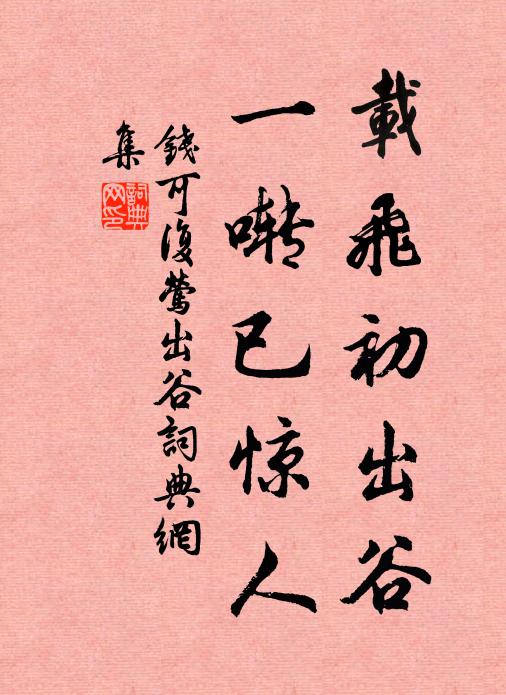 載飛初出谷
一囀已惊人
錢可復鶯出谷詞典網
集
詞典
网印